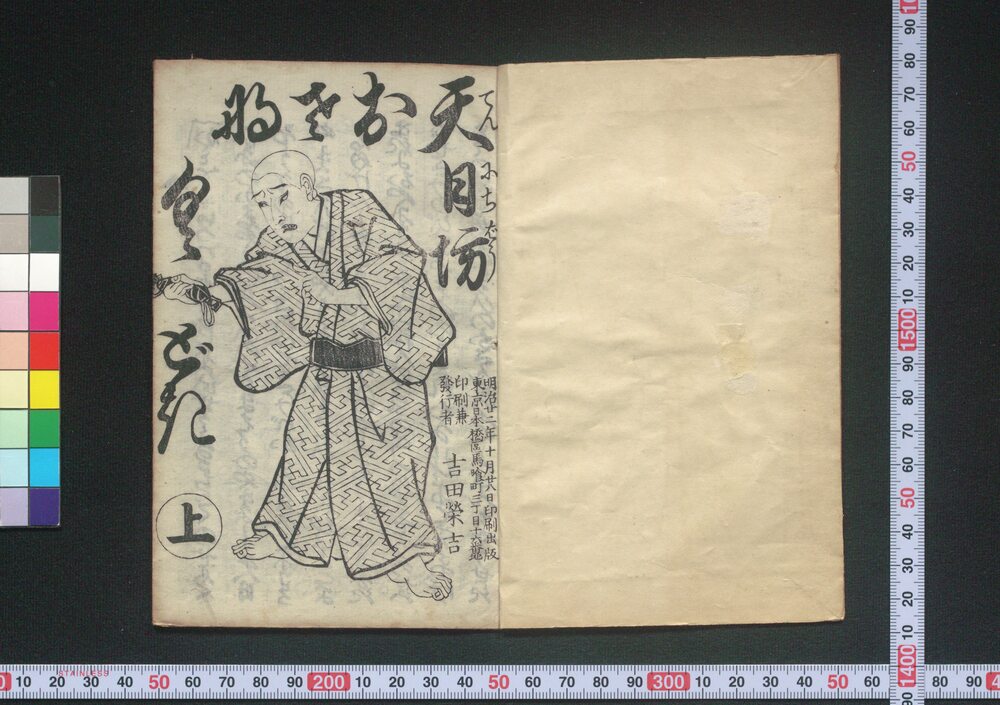 てんにちぼう
天日坊
明治廿二年十月廿八日印刷出版
東京日本橋區馬喰町三丁目十六番地
印刷兼
發行者
吉田榮吉
どき
上
STAINLESS
10 20 30 40 50 60 70 80 90 200 10 20 30 40 50 60 70 80 90 300 10 20 30 40 50 60 80 90
90 80 70 60 50 40 30 20 10 1500 90 80 70 60 50 40 30 20 10 1400 90